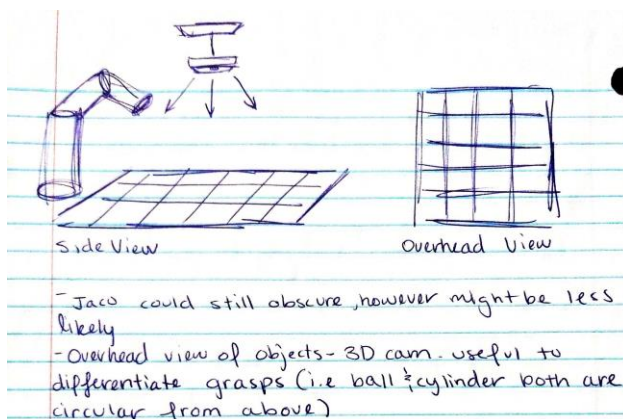 Side View
Overhead View
- Jaco could still obscure, however might be less
likely
- Overhead view of objects - 3D cam. useful to
differentiate grasps (i.e ball & cylinder both are
circular from above)